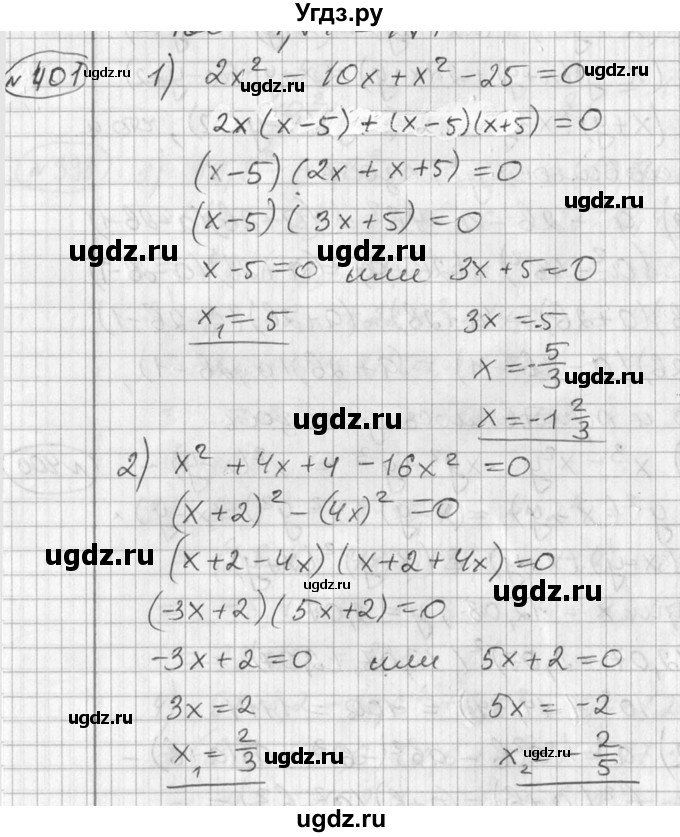 Угдз.ру
№401 ugdz.ru 1) 2x² - 10x + x² - 25 = 0 ugdz.ru
ugdz.ru
2x(x-5) + (x-5)(x+5) = 0
(x-5)(2x + x + 5) = 0
ugdz.ru
(x-5)(3x+5) = 0
ugdz.ru ugdz.ru
x-5=0 или 3x+5=0
x₁ = 5 3x = -5
x = -5/3 ugdz.ru
ugdz.ru x = -1 2/3
2) x² + 4x + 4 - 16x² = 0
(x+2)² - (4x)² = 0
ugdz.ru ugdz.ru
(x+2-4x)(x+2+4x) = 0
ugdz.ru
(-3x+2)(5x+2) = 0
-3x+2=0 или 5x+2=0
ugdz.ru 3x = 2 5x = -2
x₁ = 2/3 ugdz.ru x₂ = -2/5 ugdz.ru
ugdz.ru
ugdz.ru